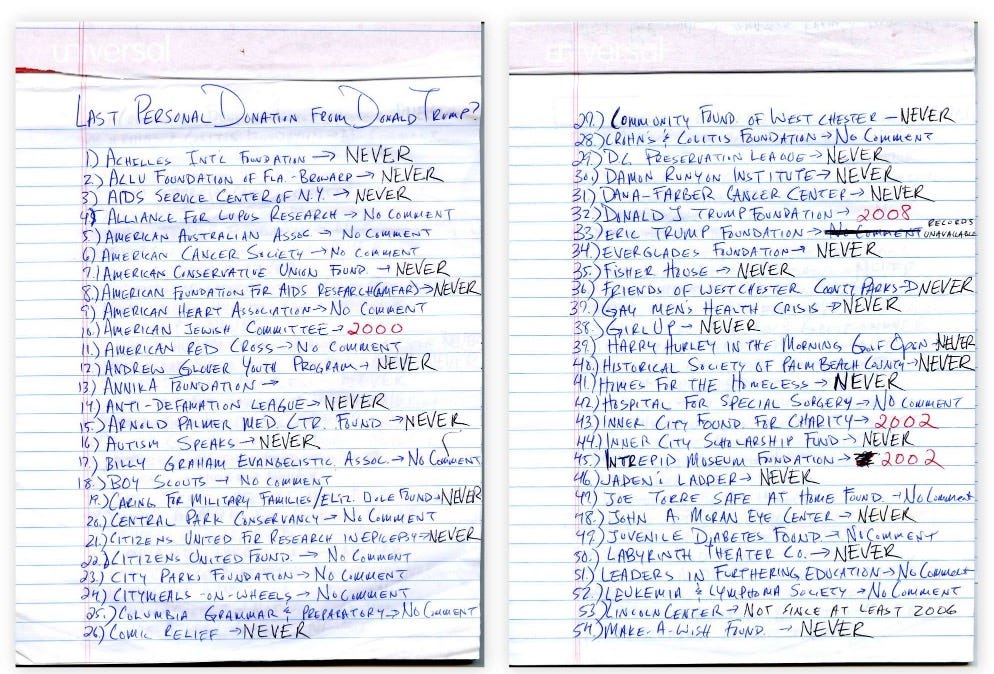 universal
LAST PERSONAL DONATION FROM DONALD TRUMP?
1) ACHILLES INT'L FOUNDATION → NEVER
2) ALLU FOUNDATION OF FLA.-BROWARD → NEVER
3) AIDS SERVICE CENTER OF N.Y. → NEVER
4) ALLIANCE FOR LUPUS RESEARCH → NO COMMENT
5) AMERICAN AUSTRALIAN ASSOC. → NO COMMENT
6) AMERICAN CANCER SOCIETY → NO COMMENT
7) AMERICAN CONSERVATIVE UNION FOUND. → NEVER
8) AMERICAN FOUNDATION FOR AIDS RESEARCH (AMFAR) → NEVER
9) AMERICAN HEART ASSOCIATION → NO COMMENT
10) AMERICAN JEWISH COMMITTEE → 2000
11.) AMERICAN RED CROSS → NO COMMENT
12) ANDREW GLOVER YOUTH PROGRAM → NEVER
13) ANNIKA FOUNDATION →
14) ANTI-DEFAMATION LEAGUE → NEVER
15) ARNOLD PALMER MED CTR. FOUND → NEVER
16) AUTISM SPEAKS → NEVER
17.) BILLY GRAHAM EVANGELISTIC ASSOC. → NO COMMENT
18.) BOY SCOUTS → NO COMMENT
19.) CARING FOR MILITARY FAMILIES/ELIZ. DOLE FOUND → NEVER
20.) CENTRAL PARK CONSERVANCY → NO COMMENT
21.) CITIZENS UNITED FOR RESEARCH IN EPILEPSY → NEVER
22.) CITIZENS UNITED FOUND. → NO COMMENT
23.) CITY PARKS FOUNDATION → NO COMMENT
24) CITYMEALS-ON-WHEELS → NO COMMENT
25.) COLUMBIA GRAMMAR & PREPARATORY → NO COMMENT
26) COMIC RELIEF → NEVER
universal
27.) COMMUNITY FOUND. OF WESTCHESTER – NEVER
28.) CROHN'S & COLITIS FOUNDATION → NO COMMENT
29.) D.C. PRESERVATION LEAGUE → NEVER
30.) DAMON RUNYON INSTITUTE → NEVER
31) DANA-FARBER CANCER CENTER → NEVER
32) DONALD J TRUMP FOUNDATION → 2008
33.) ERIC TRUMP FOUNDATION → NO COMMENT RECORDS UNAVAILABLE
34.) EVERGLADES FOUNDATION → NEVER
35.) FISHER HOUSE → NEVER
36) FRIENDS OF WESTCHESTER COUNTY PARKS → NEVER
37.) GAY MEN'S HEALTH CRISIS → NEVER
38.) GIRL UP → NEVER
39.) HARRY HURLEY IN THE MORNING GOLF OPEN → NEVER
40.) HISTORICAL SOCIETY OF PALM BEACH COUNTY → NEVER
41.) HOMES FOR THE HOMELESS → NEVER
42.) HOSPITAL FOR SPECIAL SURGERY → NO COMMENT
43.) INNER CITY FOUND. FOR CHARITY → 2002
44.) INNER CITY SCHOLARSHIP FUND → NEVER
45.) INTREPID MUSEUM FOUNDATION → 2002
46.) JADEN'S LADDER → NEVER
47) JOE TORRE SAFE AT HOME FOUND. → NO COMMENT
48.) JOHN A. MORAN EYE CENTER → NEVER
49.) JUVENILE DIABETES FOUND → NO COMMENT
50.) LABYRINTH THEATER CO. → NEVER
51.) LEADERS IN FURTHERING EDUCATION → NO COMMENT
52.) LEUKEMIA & LYMPHOMA SOCIETY → NO COMMENT
53) LINCOLN CENTER → NOT SINCE AT LEAST 2006
54) MAKE-A-WISH FOUND. → NEVER